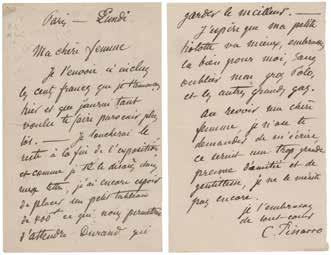 Paris — Lundi
Ma chère femme
Je t'envoie ci inclus
les cent francs que je
hier et que j'aurai tant
voulu te faire parvenir plus
tôt. — Je toucherai le
reste à la fin de l'exposition
et comme je te le disais dans
ma lettre, j'ai encore espoir
de placer un petit tableau
de ce qui nous permettra
d'attendre Durand qui
garder le meilleur. —
J'espère que ma petite
va mieux, embrasse
la bien pour moi, sans
oublier mon gros
et les autres grands
au revoir ma chère
femme je n'ose te
demander de m'écrire
ce serait une trop grande
preuve d'amitié et de
gentillesse, je ne le mérite
pas encore.
je t'embrasse
de tout cœur
C. Pissarro